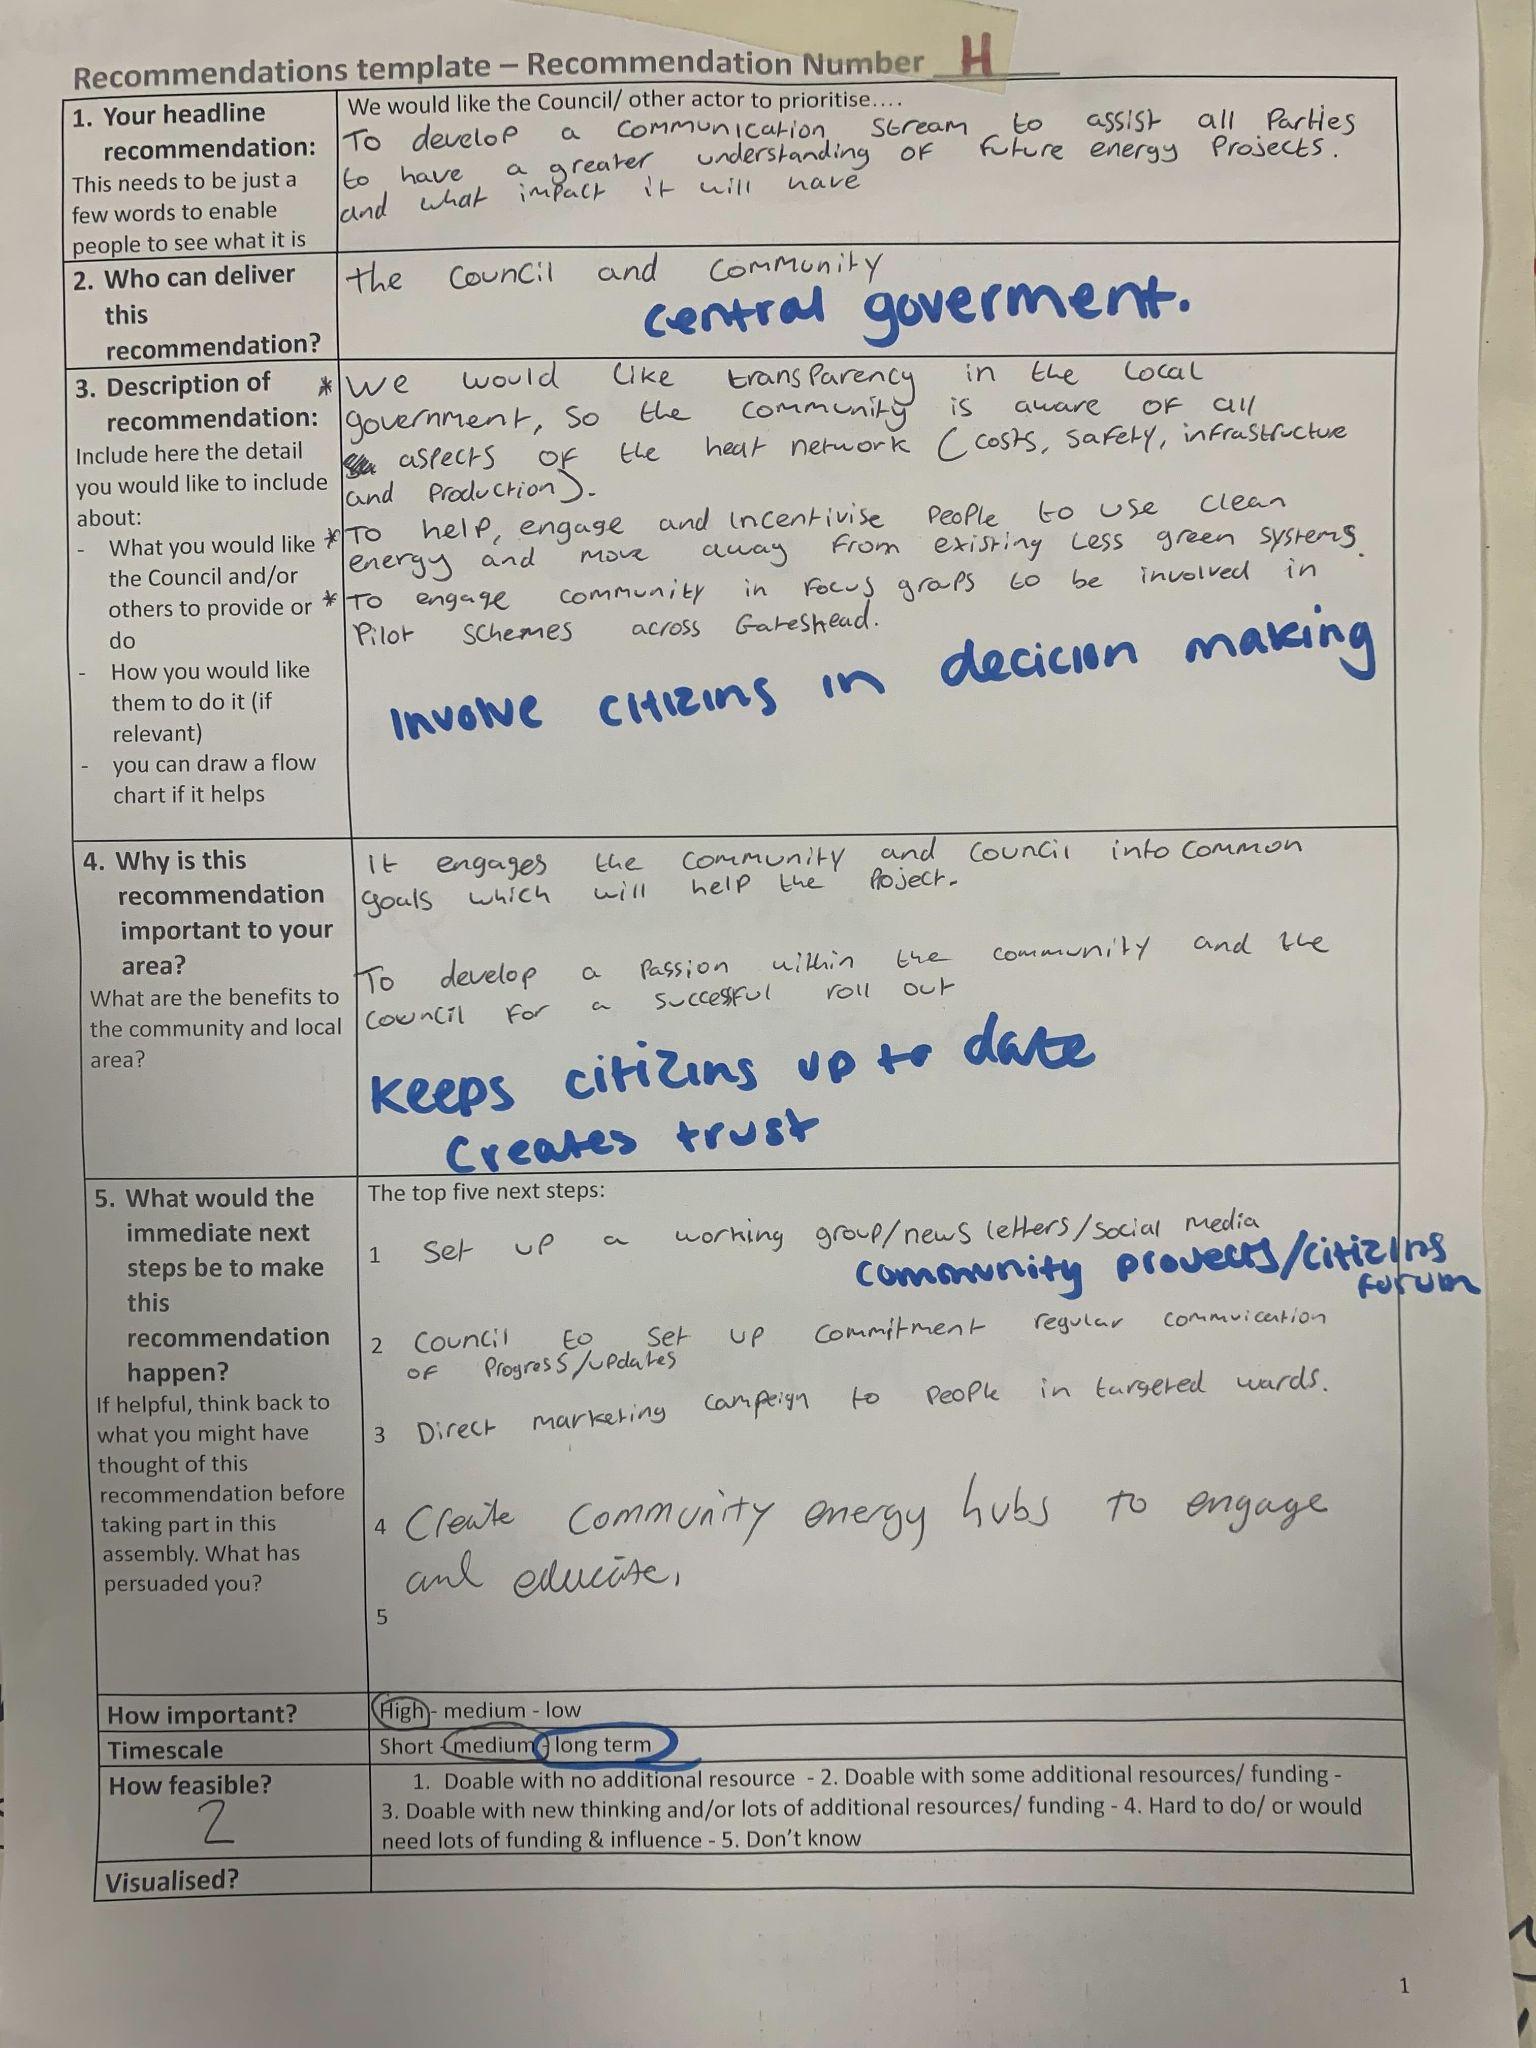 Recommendations template – Recommendation Number H
1. Your headline
recommendation:
This needs to be just a
few words to enable
people to see what it is
We would like the Council/ other actor to prioritise….
To develop a communication stream to assist all Parties
to have a greater understanding of future energy Projects.
and what impact it will have
2. Who can deliver
this
recommendation?
the council and community
central goverment.
3. Description of
recommendation:
Include here the detail
you would like to include
about:
- What you would like
the Council and/or
others to provide or
do
- How you would like
them to do it (if
relevant)
- you can draw a flow
chart if it helps
* We would like transparency in the local
government, so the community is aware of all
aspects of the heat network (costs, safety, infrastructue
and Production).
* To help, engage and incentivise people to use clean
energy and move away from existing less green systems.
* To engage community in focus groups to be involved in
Pilot schemes across Gateshead.
involve citizins in decicion making
4. Why is this
recommendation
important to your
area?
What are the benefits to
the community and local
area?
It engages the community and council into common
goals which will help the Poject.
To develop a Passion within the community and the
council for a successful roll out
Keeps citizins up to date
Creates trust
5. What would the
immediate next
steps be to make
this
recommendation
happen?
If helpful, think back to
what you might have
thought of this
recommendation before
taking part in this
assembly. What has
persuaded you?
The top five next steps:
1 Set up a working group/news letters/social media
community provects/citizins
forum
2 Council to set up commitment regular commuication
of Progress/updates
3 Direct marketing campeign to people in targeted wards.
4 Create Community energy hubs to engage
and educate.
5
How important?
High - medium - low
Timescale
Short - medium - long term
How feasible?
2
1. Doable with no additional resource - 2. Doable with some additional resources/ funding -
3. Doable with new thinking and/or lots of additional resources/ funding - 4. Hard to do/ or would
need lots of funding & influence - 5. Don't know
Visualised?
1